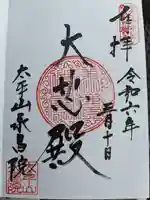 奉拝
令和六年
三月十日
大悲殿
太平山永昌院